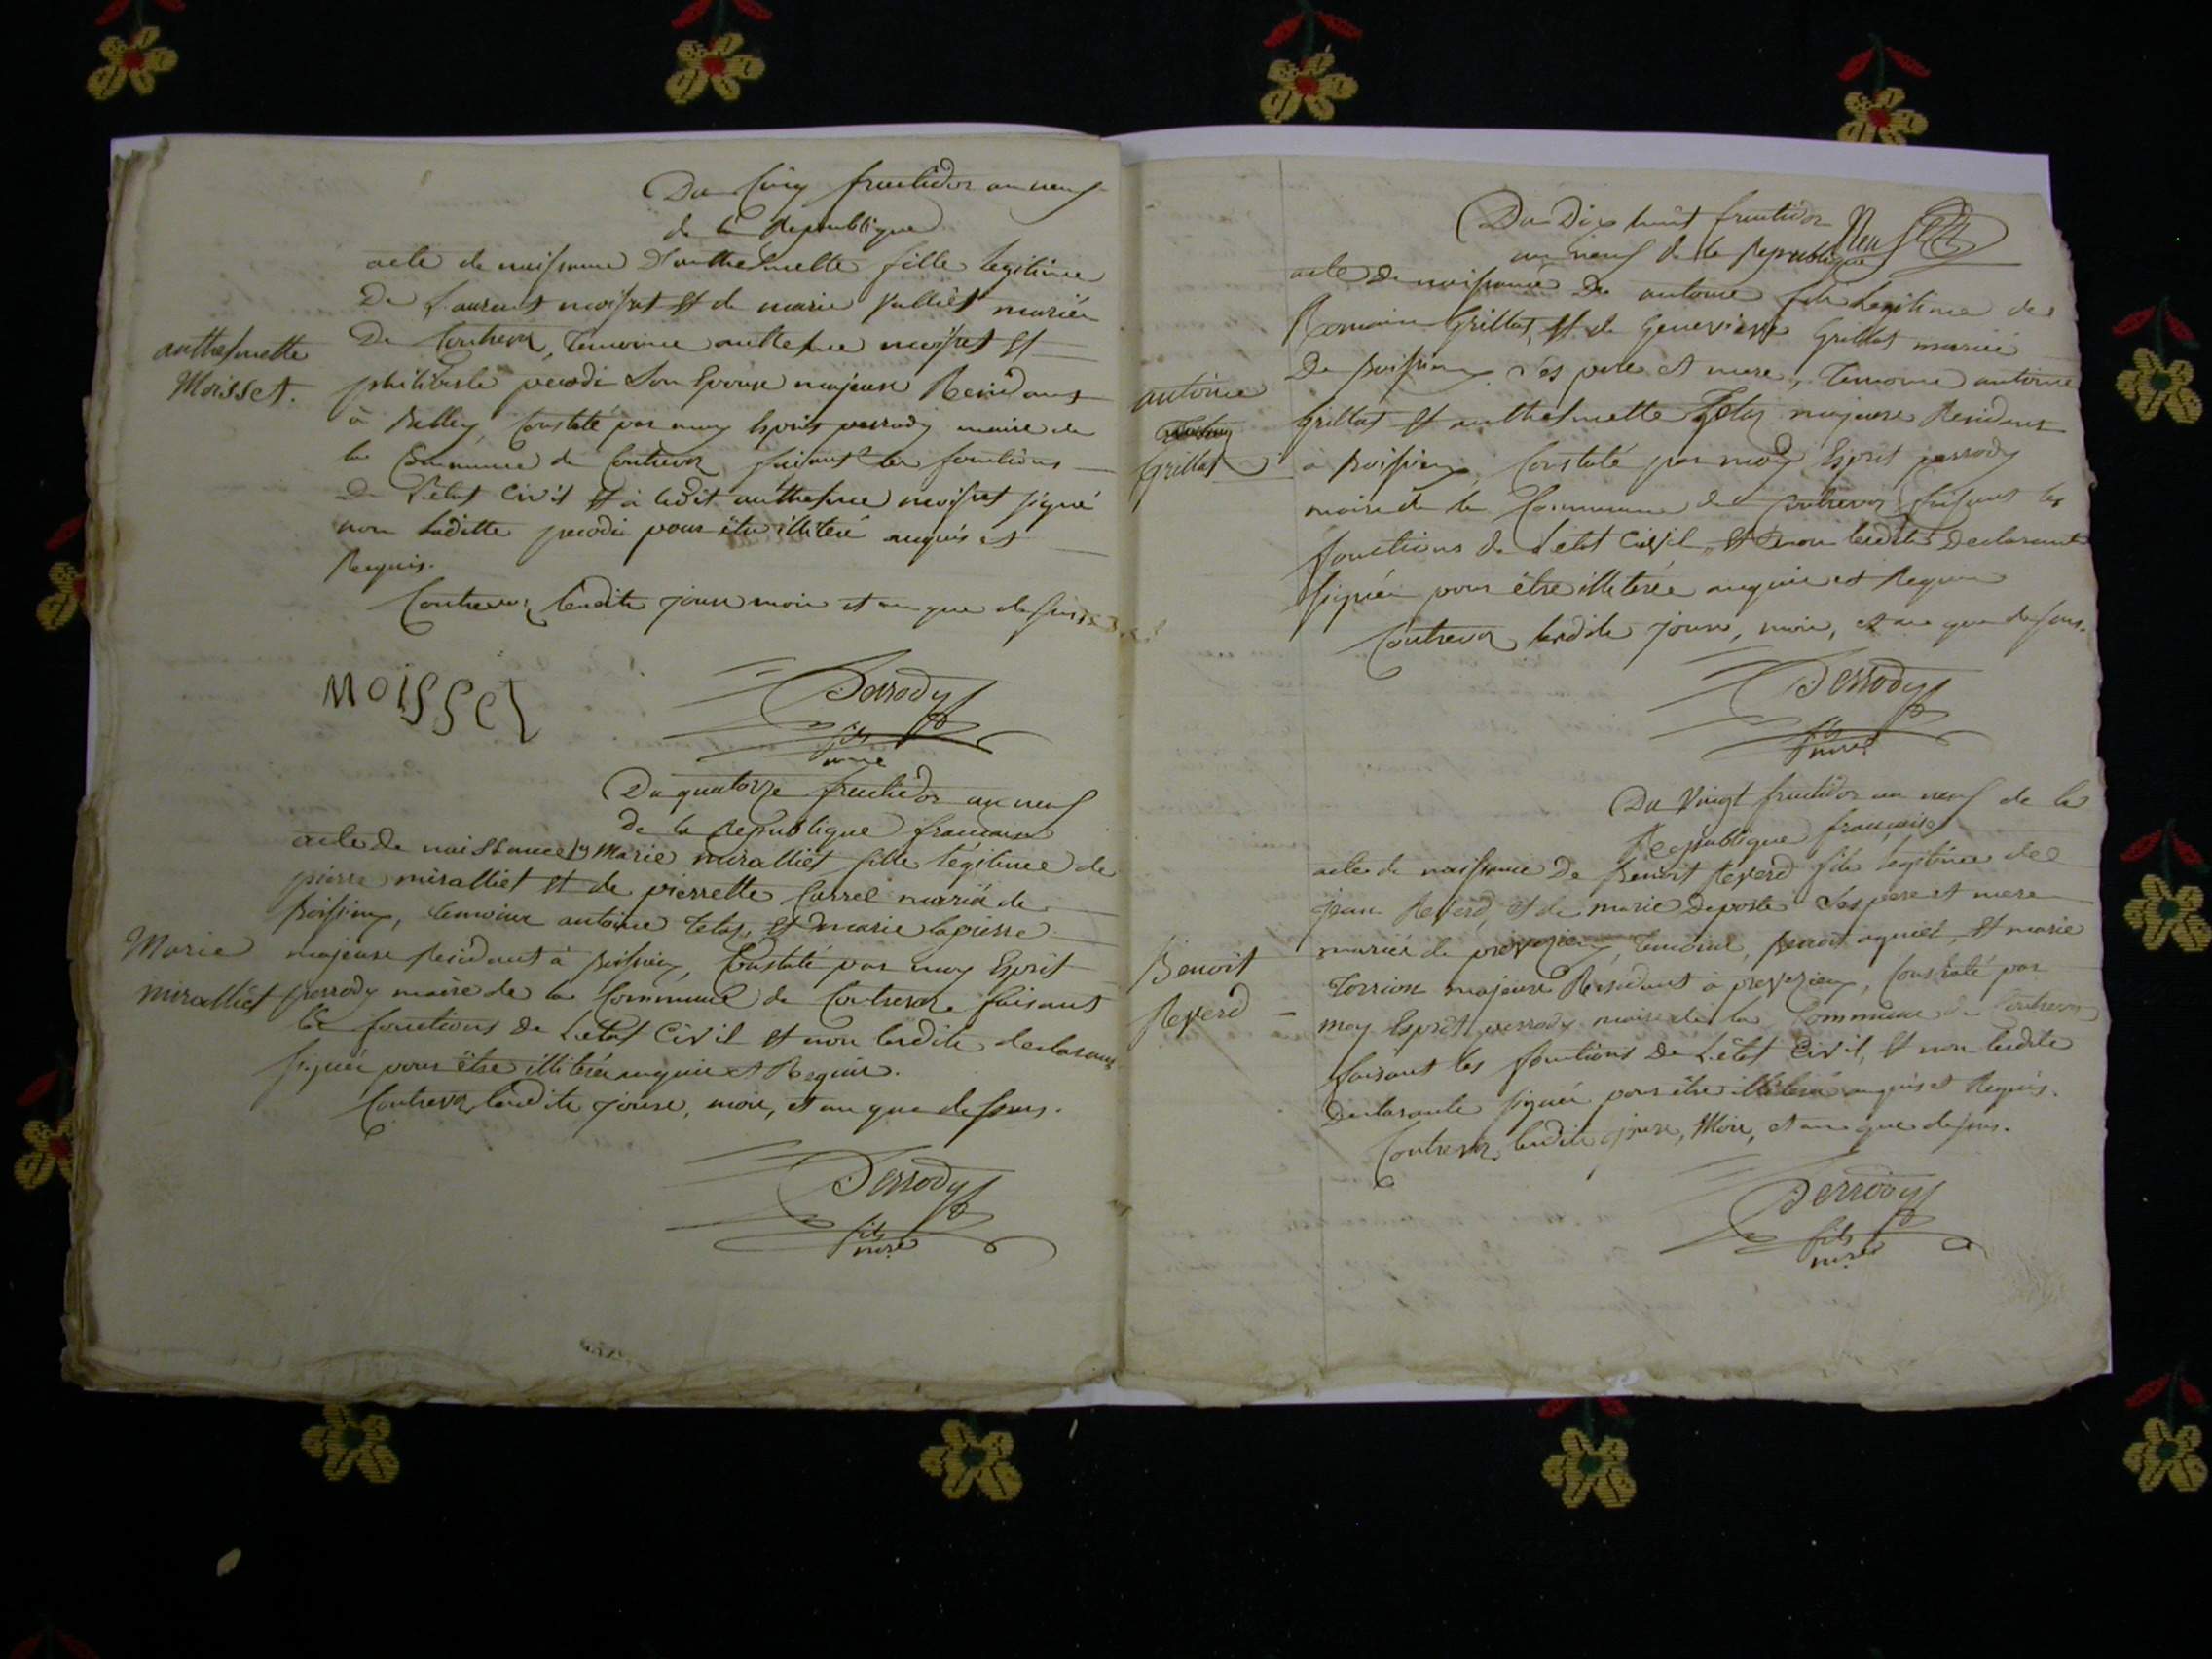 Du Cinq fructidor an neuf
de la Republique
acte de naissance D'anthelmette fille legitime
De Laurent moisset et de marie Julliet mariés
De Contrevoz, temoins anthelme moisset et
philiberte perodi Son Epouse majeurs Residants
à Belley, Constaté par moy Esprit perrody maire de
la Commune de Contrevoz faisant les fonctions
De L'etat Civil et à ledit anthelme moisset signé
non laditte perodi pour être illiteré enquis et
Requis.
Contrevoz lesdits jour mois et an que dessus
anthelmette
Moisset.
MOISSET
Perrody
fils
maire
Du quatorze fructidor an neuf
de la Republique francaise
acte de naissance de Marie miralliet fille légitime de
pierre miralliet et de pierrette Carrel mariés de
Boissieu, temoins antoine Telay, et marie lapierre
majeurs Residant à Boissieu, Constaté par moy Esprit
perrody maire de la Commune de Contrevoz faisant
les fonctions De L'état Civil et non lesdits declarants
signés pour être illiterés enquis et Requis.
Contrevoz lesdits jour, mois, et an que dessus.
Marie
miralliet
Perrody
fils
maire
Neuf
Du Dix huit fructidor
an neuf de la Republique
acte De naissance De antoine fils Legitime de
Romain Grillat, et de Genevieve Grillat mariés
De Boissieu Ses pere et mere, temoins antoine
Grillat et anthelmette Telay majeurs Residants
à Boissieu, Constaté par moy Esprit perrody
maire de la Commune de Contrevoz faisant les
fonctions de L'etat Civil, et non lesdits Declarants
signés pour être illiterés enquis et Requis
Contrevoz lesdits jour, mois, et an que dessus.
antoine
Grillat
Perrody
fils
maire
Du Vingt fructidor an neuf de la
Republique française
acte de naissance De Benoit Reverd fils legitime de
jean Reverd, et de marie Deporte Ses pere et mere
mariés de prevezieu, temoins, Benoit aguiel, et marie
Torrion majeurs Residants à prevezieu, Constaté par
moy Esprit perrody maire de la Commune de Contrevoz
faisant les fonctions De L'état Civil, et non lesdits
Declarants signés pour être illiteré enquis et Requis.
Contrevoz lesdits jour, Mois, et an que dessus.
Benoit
Reverd
Perrody
fils
maire